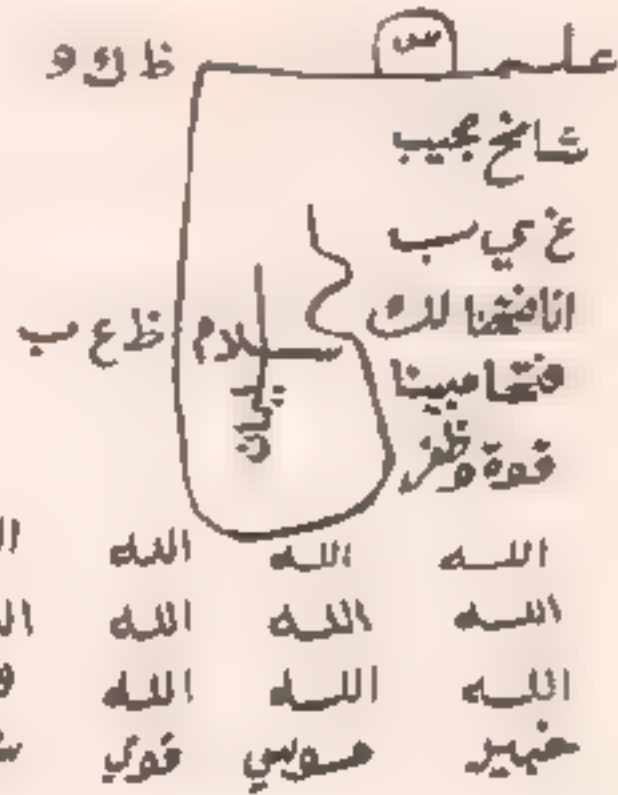 علم س ظ ك و
شامخ مجيب
غ ي ب
انا فتحنا لك
سلام ظ ع ب
فتحا مبينا
قوة وظفر
الله الله الله
الله الله الله
الله الله الله
خبير موسي قوي